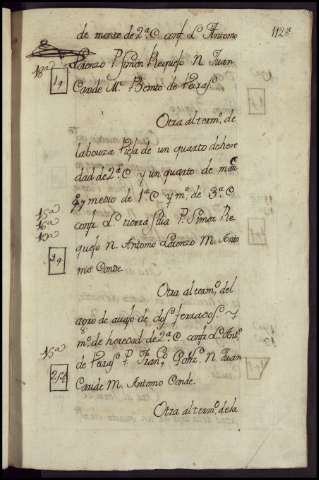 de monte de 2ª C conf. L. Antonio
112
18ª
Lorenzo P. Simon Requejo N. Juan
Conde M. Benito de
Otra al term.º de
la bouza Vieja de un quarto de here
dad de 2ª C y un quarto de
y medio de 1ª C y m.º de 3ª C
15ª
16ª
conf. L. tierra P. Simon Re
quejo N. Antonio Lorenzo M. Anto
19
nio Conde
Otra al term.º del
agro de avajo de dos ferrados y
m.º de heredad de 2ª C conf. L. Ant.º
15ª
de P. Fran.co N. Juan
Conde M. Antonio Conde.
Otra al term.º de la